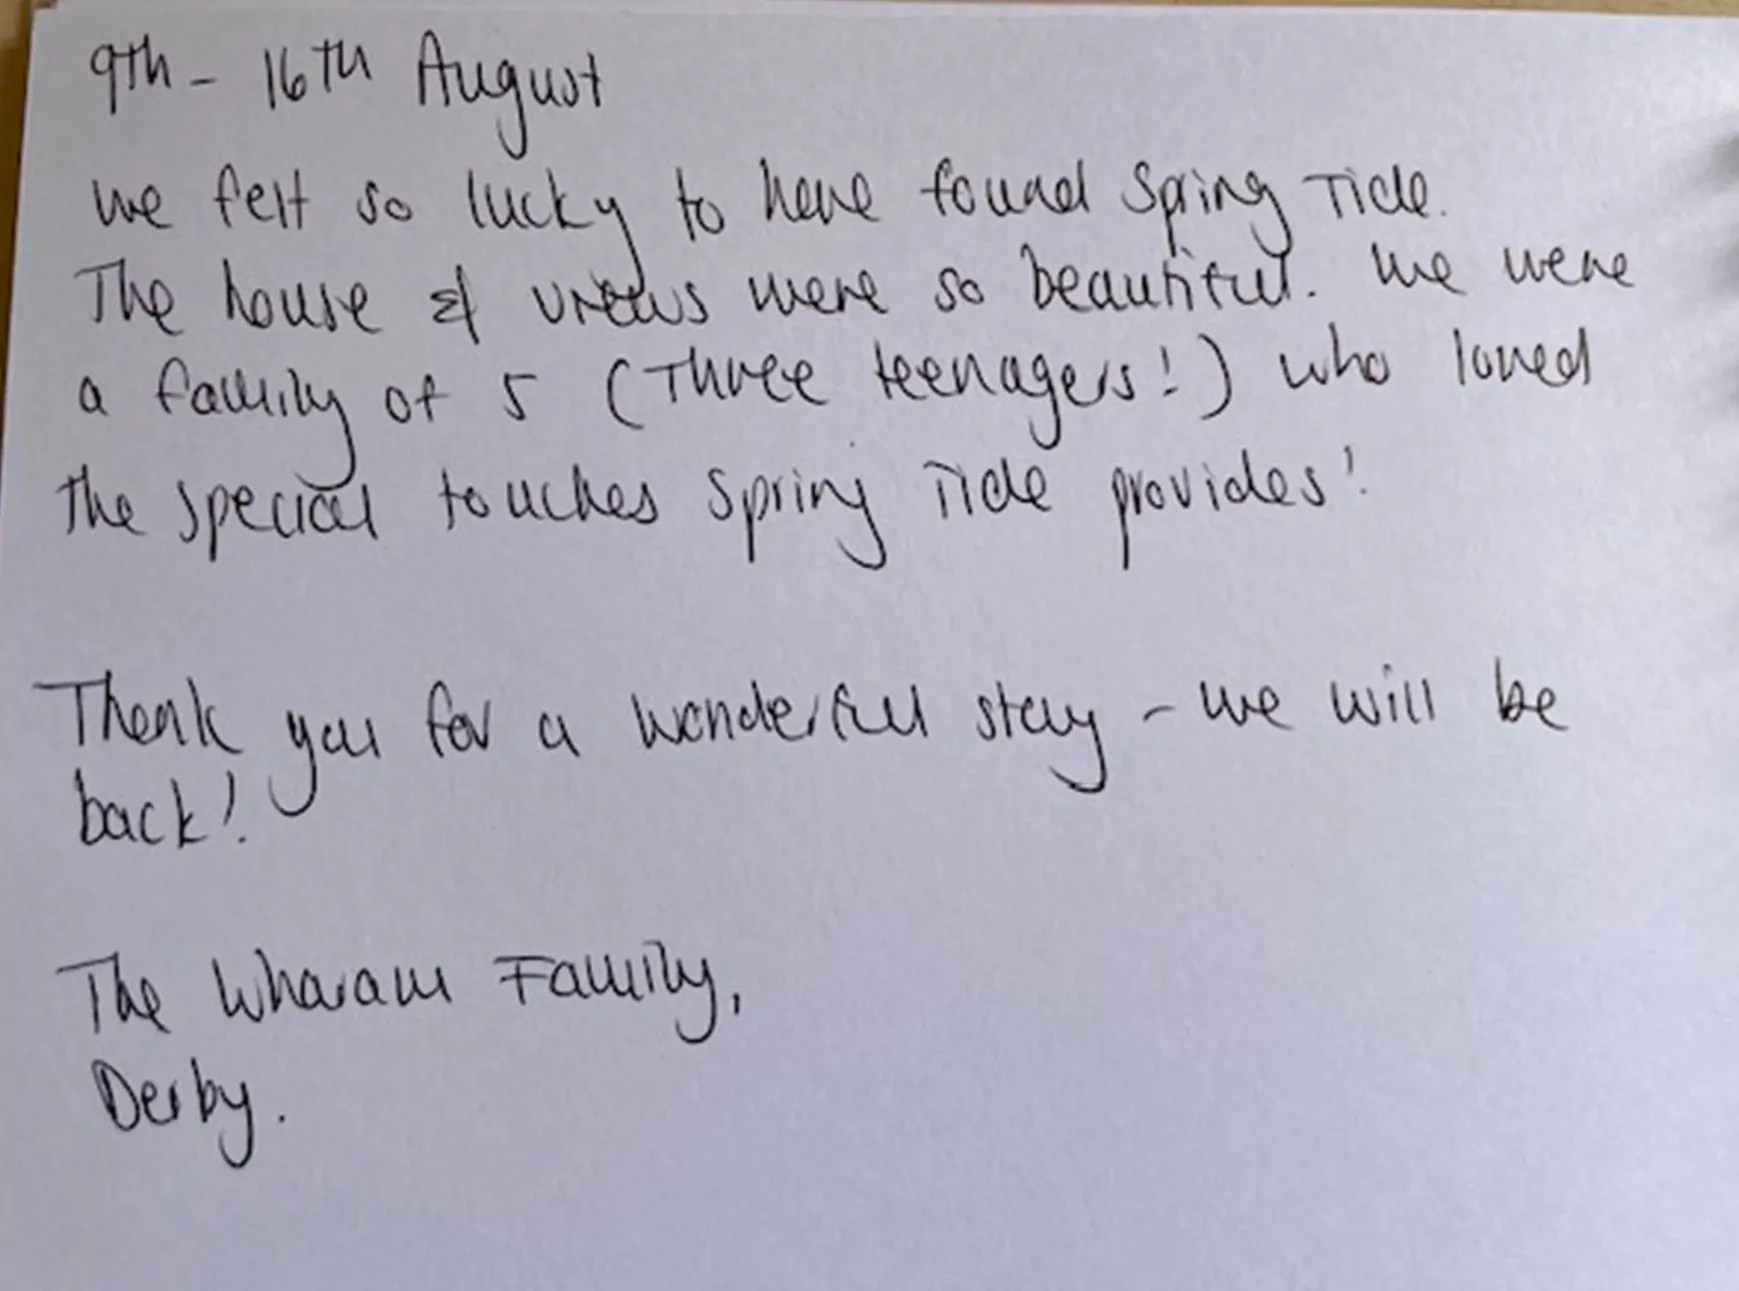 9th - 16th August
We felt so lucky to have found Spring Tide.
The house & views were so beautiful. We were
a family of 5 (Three teenagers!) who loved
the special touches Spring Tide provides!
Thank you for a wonderful stay - we will be
back!
The Wharam Family,
Derby.